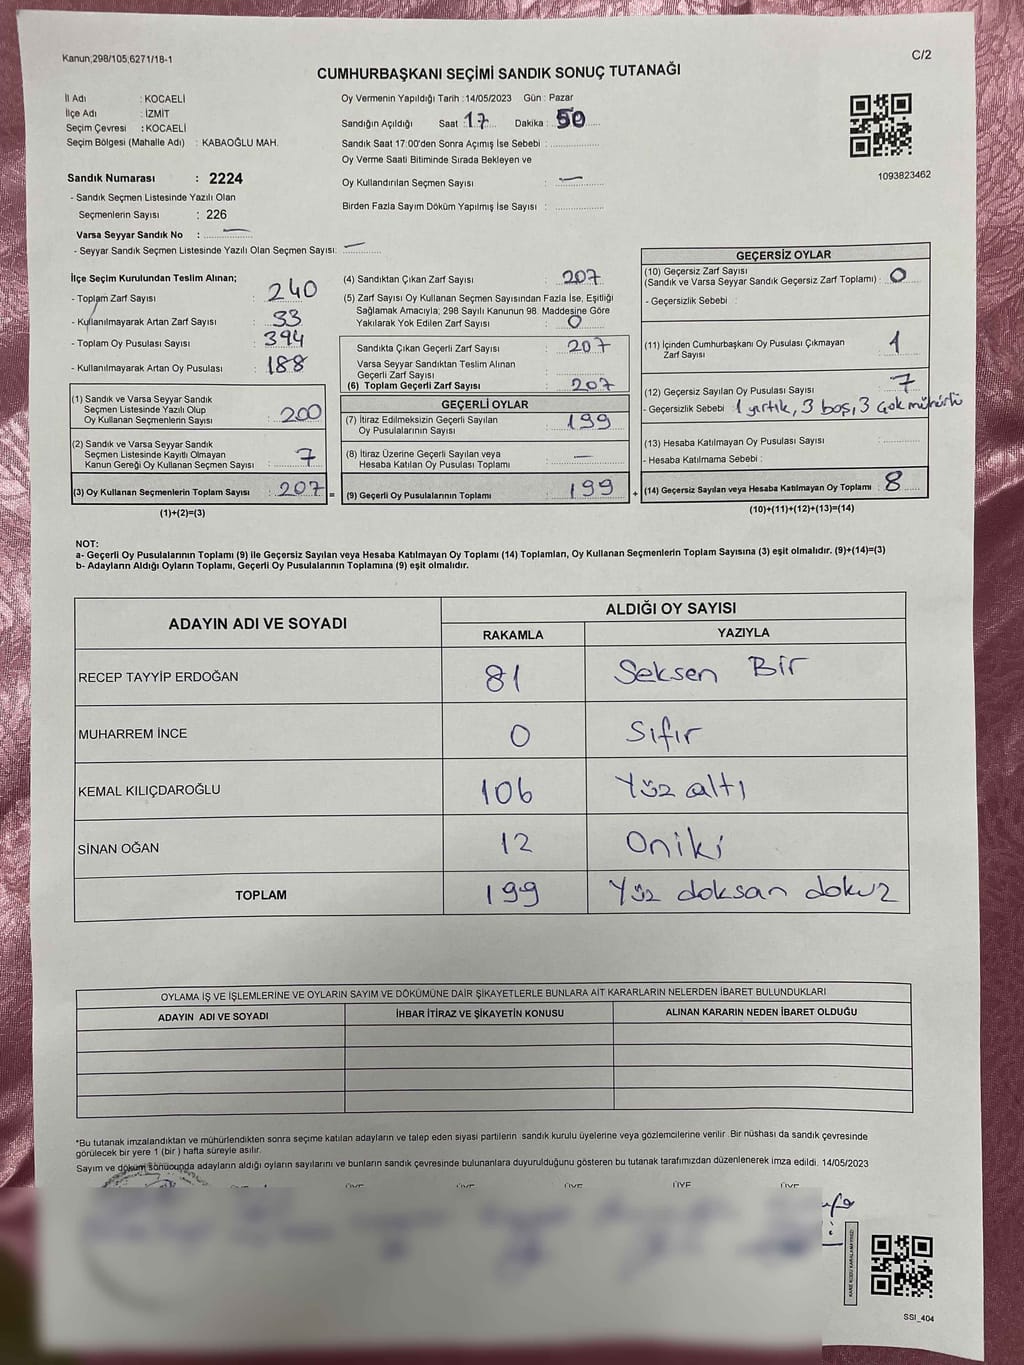 Kanun;298/105,6271/18-1
C/2
CUMHURBAŞKANI SEÇİMİ SANDIK SONUÇ TUTANAĞI
İl Adı : KOCAELİ
İlçe Adı : İZMİT
Seçim Çevresi : KOCAELİ
Seçim Bölgesi (Mahalle Adı) : KABAOĞLU MAH.
Sandık Numarası : 2224
- Sandık Seçmen Listesinde Yazılı Olan
Seçmenlerin Sayısı : 226
Varsa Seyyar Sandık No : —
- Seyyar Sandık Seçmen Listesinde Yazılı Olan Seçmen Sayısı: —
Oy Vermenin Yapıldığı Tarih :14/05/2023 Gün : Pazar
Sandığın Açıldığı Saat : 17 Dakika : 50
Sandık Saat 17:00'den Sonra Açımış İse Sebebi :
Oy Verme Saati Bitiminde Sırada Bekleyen ve
Oy Kullandırılan Seçmen Sayısı : —
Birden Fazla Sayım Döküm Yapılmış İse Sayısı :
1093823462
İlçe Seçim Kurulundan Teslim Alınan;
- Toplam Zarf Sayısı : 240
- Kullanılmayarak Artan Zarf Sayısı : 33
- Toplam Oy Pusulası Sayısı : 394
- Kullanılmayarak Artan Oy Pusulası : 188
(1) Sandık ve Varsa Seyyar Sandık
Seçmen Listesinde Yazılı Olup
Oy Kullanan Seçmenlerin Sayısı : 200
(2) Sandık ve Varsa Seyyar Sandık
Seçmen Listesinde Kayıtlı Olmayan
Kanun Gereği Oy Kullanan Seçmen Sayısı : 7
(3) Oy Kullanan Seçmenlerin Toplam Sayısı : 207 =
(1)+(2)=(3)
(4) Sandıktan Çıkan Zarf Sayısı : 207
(5) Zarf Sayısı Oy Kullanan Seçmen Sayısından Fazla İse, Eşitliği
Sağlamak Amacıyla; 298 Sayılı Kanunun 98. Maddesine Göre
Yakılarak Yok Edilen Zarf Sayısı : 0
Sandıkta Çıkan Geçerli Zarf Sayısı : 207
Varsa Seyyar Sandıktan Teslim Alınan
Geçerli Zarf Sayısı :
(6) Toplam Geçerli Zarf Sayısı : 207
GEÇERLİ OYLAR
(7) İtiraz Edilmeksizin Geçerli Sayılan
Oy Pusulalarının Sayısı : 199
(8) İtiraz Üzerine Geçerli Sayılan veya
Hesaba Katılan Oy Pusulası Toplamı : —
(9) Geçerli Oy Pusulalarının Toplamı : 199 +
GEÇERSİZ OYLAR
(10) Geçersiz Zarf Sayısı
(Sandık ve Varsa Seyyar Sandık Geçersiz Zarf Toplamı) : 0
- Geçersizlik Sebebi :
(11) İçinden Cumhurbaşkanı Oy Pusulası Çıkmayan
Zarf Sayısı : 1
(12) Geçersiz Sayılan Oy Pusulası Sayısı : 7
- Geçersizlik Sebebi : 1 yırtık, 3 boş, 3 Çok mühürlü
(13) Hesaba Katılmayan Oy Pusulası Sayısı :
- Hesaba Katılmama Sebebi :
(14) Geçersiz Sayılan veya Hesaba Katılmayan Oy Toplamı : 8
(10)+(11)+(12)+(13)=(14)
NOT:
a- Geçerli Oy Pusulalarının Toplamı (9) ile Geçersiz Sayılan veya Hesaba Katılmayan Oy Toplamı (14) Toplamları, Oy Kullanan Seçmenlerin Toplam Sayısına (3) eşit olmalıdır. (9)+(14)=(3)
b- Adayların Aldığı Oyların Toplamı, Geçerli Oy Pusulalarının Toplamına (9) eşit olmalıdır.
ADAYIN ADI VE SOYADI
ALDIĞI OY SAYISI
RAKAMLA YAZIYLA
RECEP TAYYİP ERDOĞAN 81 Seksen Bir
MUHARREM İNCE 0 Sıfır
KEMAL KILIÇDAROĞLU 106 Yüz altı
SİNAN OĞAN 12 Oniki
TOPLAM 199 Yüz doksan dokuz
OYLAMA İŞ VE İŞLEMLERİNE VE OYLARIN SAYIM VE DÖKÜMÜNE DAİR ŞİKAYETLERLE BUNLARA AİT KARARLARIN NELERDEN İBARET BULUNDUKLARI
ADAYIN ADI VE SOYADI İHBAR İTİRAZ VE ŞİKAYETİN KONUSU ALINAN KARARIN NEDEN İBARET OLDUĞU
*Bu tutanak imzalandıktan ve mühürlendikten sonra seçime katılan adayların ve talep eden siyasi partilerin sandık kurulu üyelerine veya gözlemcilerine verilir. Bir nüshası da sandık çevresinde
görülecek bir yere 1 (bir) hafta süreyle asılır.
Sayım ve döküm sonucunda adayların aldığı oyların sayılarını ve bunların sandık çevresinde bulunanlara duyurulduğunu gösteren bu tutanak tarafımızdan düzenlenerek imza edildi. 14/05/2023
ÜYE ÜYE ÜYE ÜYE ÜYE
SSI_404